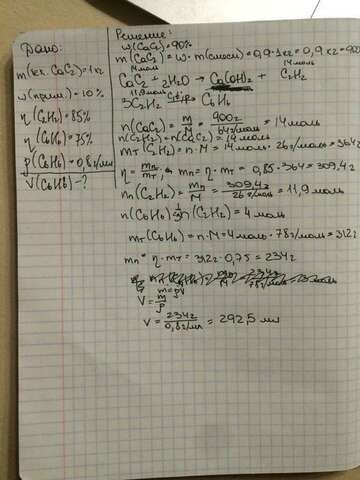 Дано:
m(тех. CaC₂) = 1 кг
w(прим.) = 10%
η(C₂H₂) = 85%
η(C₆H₆) = 75%
ρ(C₆H₆) = 0,8 г/мл
V(C₆H₆) - ?
Решение:
w(CaC₂) = 90%
m(CaC₂) = w · m(смеси) = 0,9 · 1 кг = 0,9 кг = 900
14 моль 14 моль
CaC₂ + 2H₂O → Ca(OH)₂ + C₂H₂
11,9 моль
3C₂H₂ → C₆H₆
n(CaC₂) = m/M = 900г / 64г/моль = 14 моль
n(C₂H₂) = n(CaC₂) = 14 моль
mт(C₂H₂) = n · M = 14 моль · 26 г/моль = 364
η = mп/mт, → mп = η · mт = 0,85 · 364 = 309,4 г
n(C₂H₂) = mп/M = 309,4г / 26 г/моль = 11,9 моль
n(C₆H₆) = 1/3 n(C₂H₂) = 4 моль
mт(C₆H₆) = n · M = 4 моль · 78 г/моль = 312
mп = η · mт = 312 · 0,75 = 234 г
m = ρV
V = m/ρ
V = 234 г / 0,8 г/мл = 292,5 мл